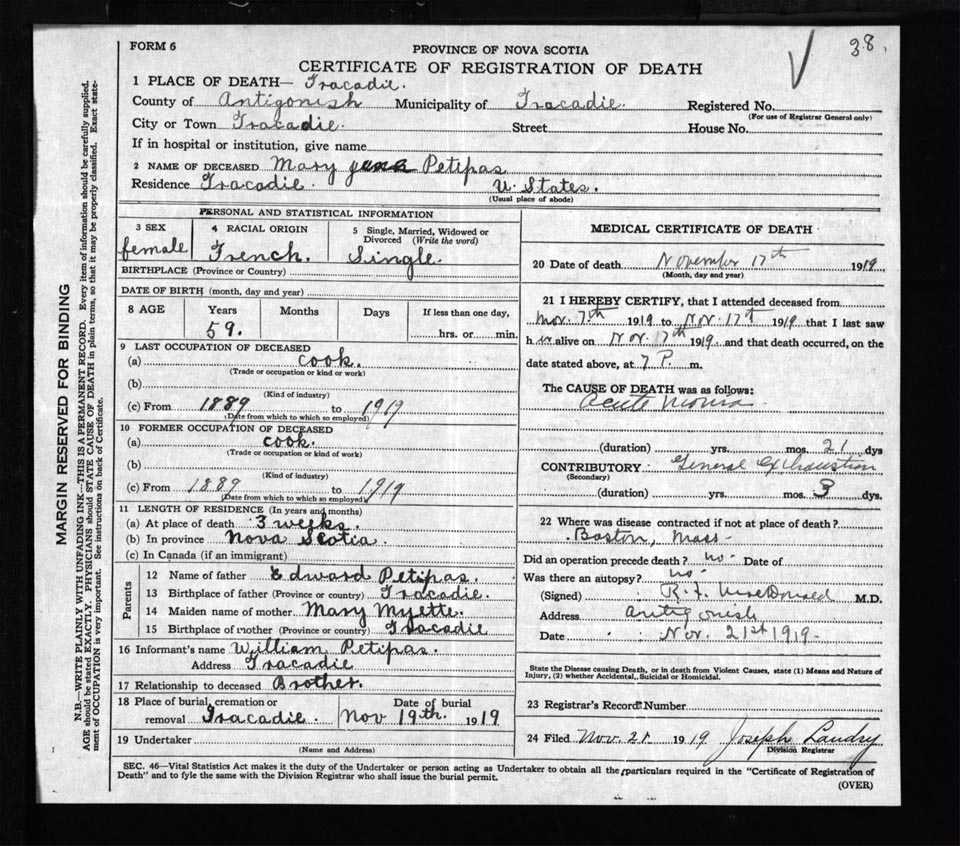 FORM 6
38.
PROVINCE OF NOVA SCOTIA
CERTIFICATE OF REGISTRATION OF DEATH
1 PLACE OF DEATH— Tracadie.
County of Antigonish Municipality of Tracadie. Registered No.
(For use of Registrar General only)
City or Town Tracadie. Street House No.
If in hospital or institution, give name
2 NAME OF DECEASED Mary Petipas
Residence Tracadie. U. States.
(Usual place of abode)
PERSONAL AND STATISTICAL INFORMATION
3 SEX 4 RACIAL ORIGIN 5 Single, Married, Widowed or Divorced (Write the word)
female French. Single.
BIRTHPLACE (Province or Country)
DATE OF BIRTH (month, day and year)
8 AGE Years Months Days If less than one day,
59. hrs. or min.
9 LAST OCCUPATION OF DECEASED
(a) cook.
(Trade or occupation or kind or work)
(b)
(Kind of industry)
(c) From 1889 to 1919
(Date from which to which so employed)
10 FORMER OCCUPATION OF DECEASED
(a) cook.
(Trade or occupation or kind of work)
(b)
(Kind of industry)
(c) From 1889 to 1919
(Date from which to which so employed)
11 LENGTH OF RESIDENCE (In years and months)
(a) At place of death 3 weeks.
(b) In province Nova Scotia.
(c) In Canada (if an immigrant)
Parents
12 Name of father Edward Petipas.
13 Birthplace of father (Province or country) Tracadie.
14 Maiden name of mother Mary Myette.
15 Birthplace of mother (Province or country) Tracadie
16 Informant's name William Petipas.
Address Tracadie
17 Relationship to deceased Brother.
18 Place of burial, cremation or Date of burial
removal Tracadie. Nov 19th. 1919
19 Undertaker
(Name and Address)
MEDICAL CERTIFICATE OF DEATH
20 Date of death November 17th 1919
(Month, day and year)
21 I HEREBY CERTIFY, that I attended deceased from
Nov. 7th 1919 to Nov. 17th 1919 that I last saw
h er alive on Nov. 17th 1919 and that death occurred, on the
date stated above, at 7 P. m.
The CAUSE OF DEATH was as follows:
Acute
(duration) yrs. mos. 21 dys
CONTRIBUTORY General Exhaustion
(Secondary)
(duration) yrs. mos. 3 dys.
22 Where was disease contracted if not at place of death?
Boston, Mass
Did an operation precede death? no Date of
Was there an autopsy? no
(Signed) R. F. MacDonald M.D.
Address Antigonish
Date Nov. 21st 1919
State the Disease causing Death, or in death from Violent Causes, state (1) Means and Nature of
Injury, (2) whether Accidental, Suicidal or Homicidal.
23 Registrar's Record Number
24 Filed Nov. 21. 1919 Joseph Landry
Division Registrar
SEC. 46—Vital Statistics Act makes it the duty of the Undertaker or person acting as Undertaker to obtain all the particulars required in the "Certificate of Registration of
Death" and to fyle the same with the Division Registrar who shall issue the burial permit.
(OVER)
MARGIN RESERVED FOR BINDING
N.B.—WRITE PLAINLY WITH UNFADING INK—THIS IS A PERMANENT RECORD. Every item of information should be carefully supplied.
AGE should be stated EXACTLY. PHYSICIANS should STATE CAUSE OF DEATH in plain terms, so that it may be properly classified. Exact state-
ment of OCCUPATION is very important. See instructions on back of Certificate.